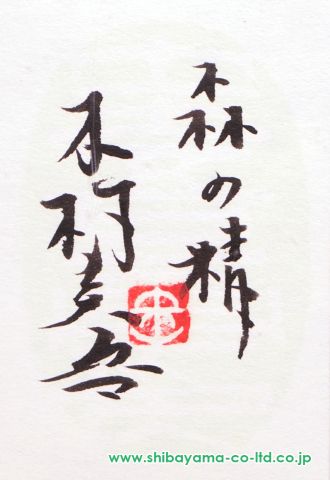 森の精
木村圭吾
www.shibayama-co-ltd.co.jp